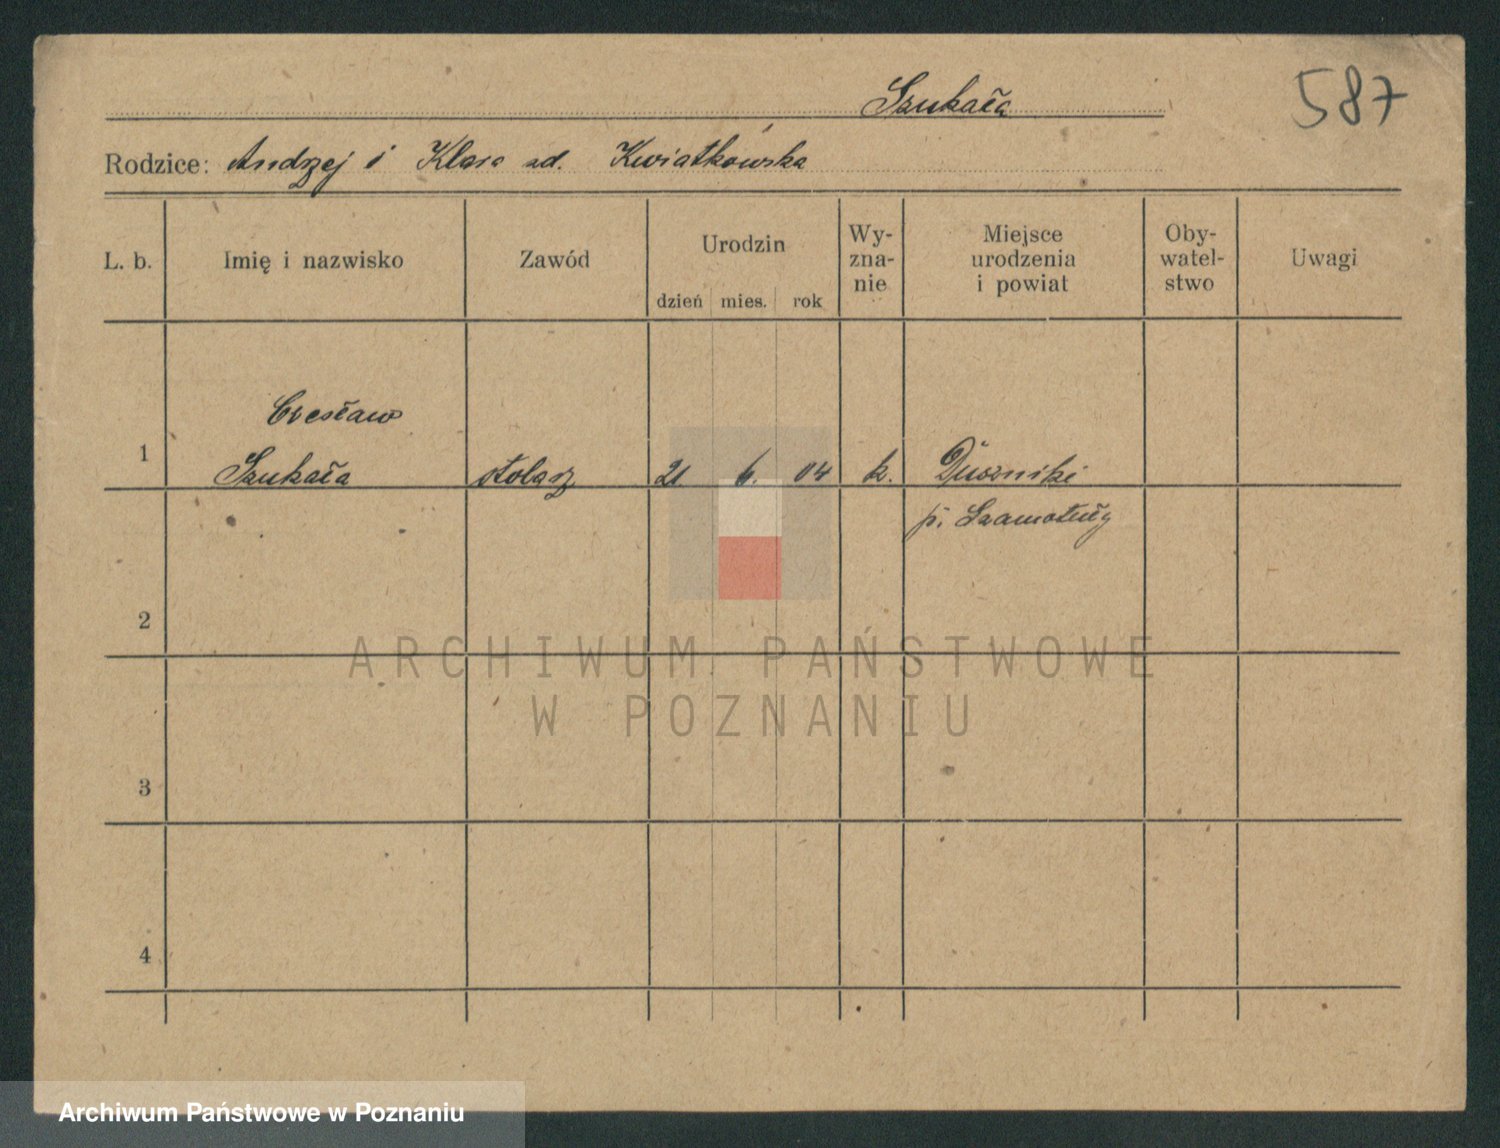 Szukała
587
Rodzice: Andrzej i Klara zd. Kwiatkowska
L. b. Imię i nazwisko Zawód Urodzin dzień mies. rok Wy- zna- nie Miejsce urodzenia i powiat Oby- watel- stwo Uwagi
Czesław
1 Szukała stolarz 21 6. 04 k. Duszniki
p. Szamotuły
2
ARCHIWUM PAŃSTWOWE
W POZNANIU
3
4
Archiwum Państwowe w Poznaniu